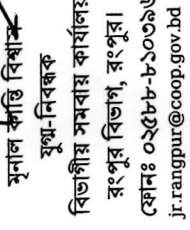 মৃনাল কান্তি বিশ্বাস
যুগ্ম-নিবন্ধক
বিভাগীয় সমবায় কার্যালয়
রংপুর বিভাগ, রংপুর।
ফোনঃ ০২৫৮৮-৮১০৩৯৬
jr.rangpur@coop.gov.bd